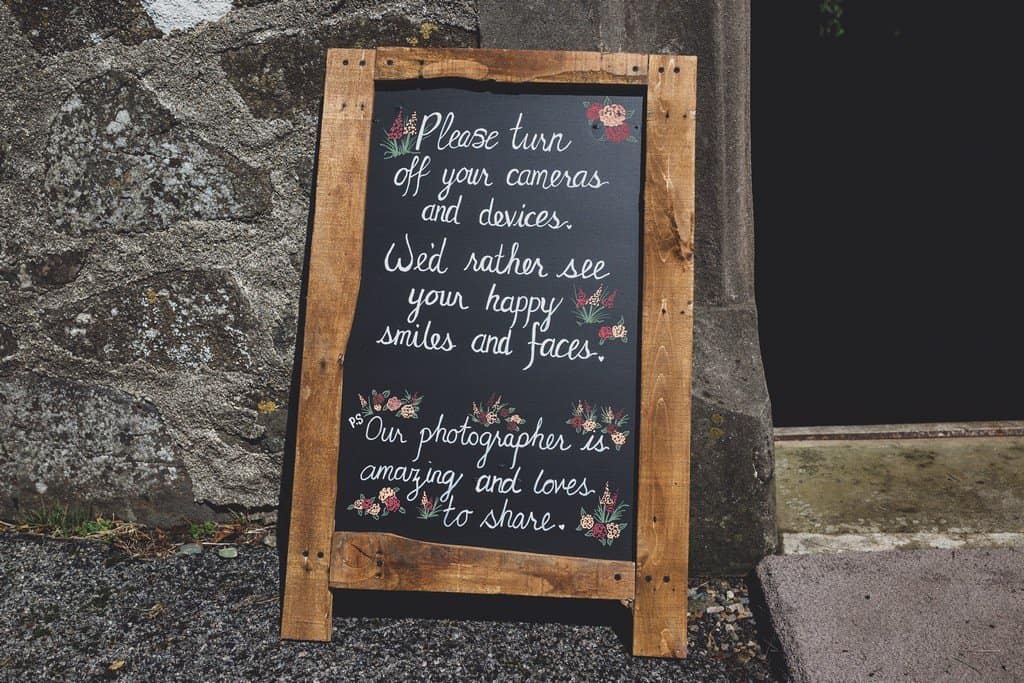 Please turn
off your cameras
and devices.
We'd rather see
your happy
smiles and faces.
P.S
Our photographer is
amazing and loves
to share.